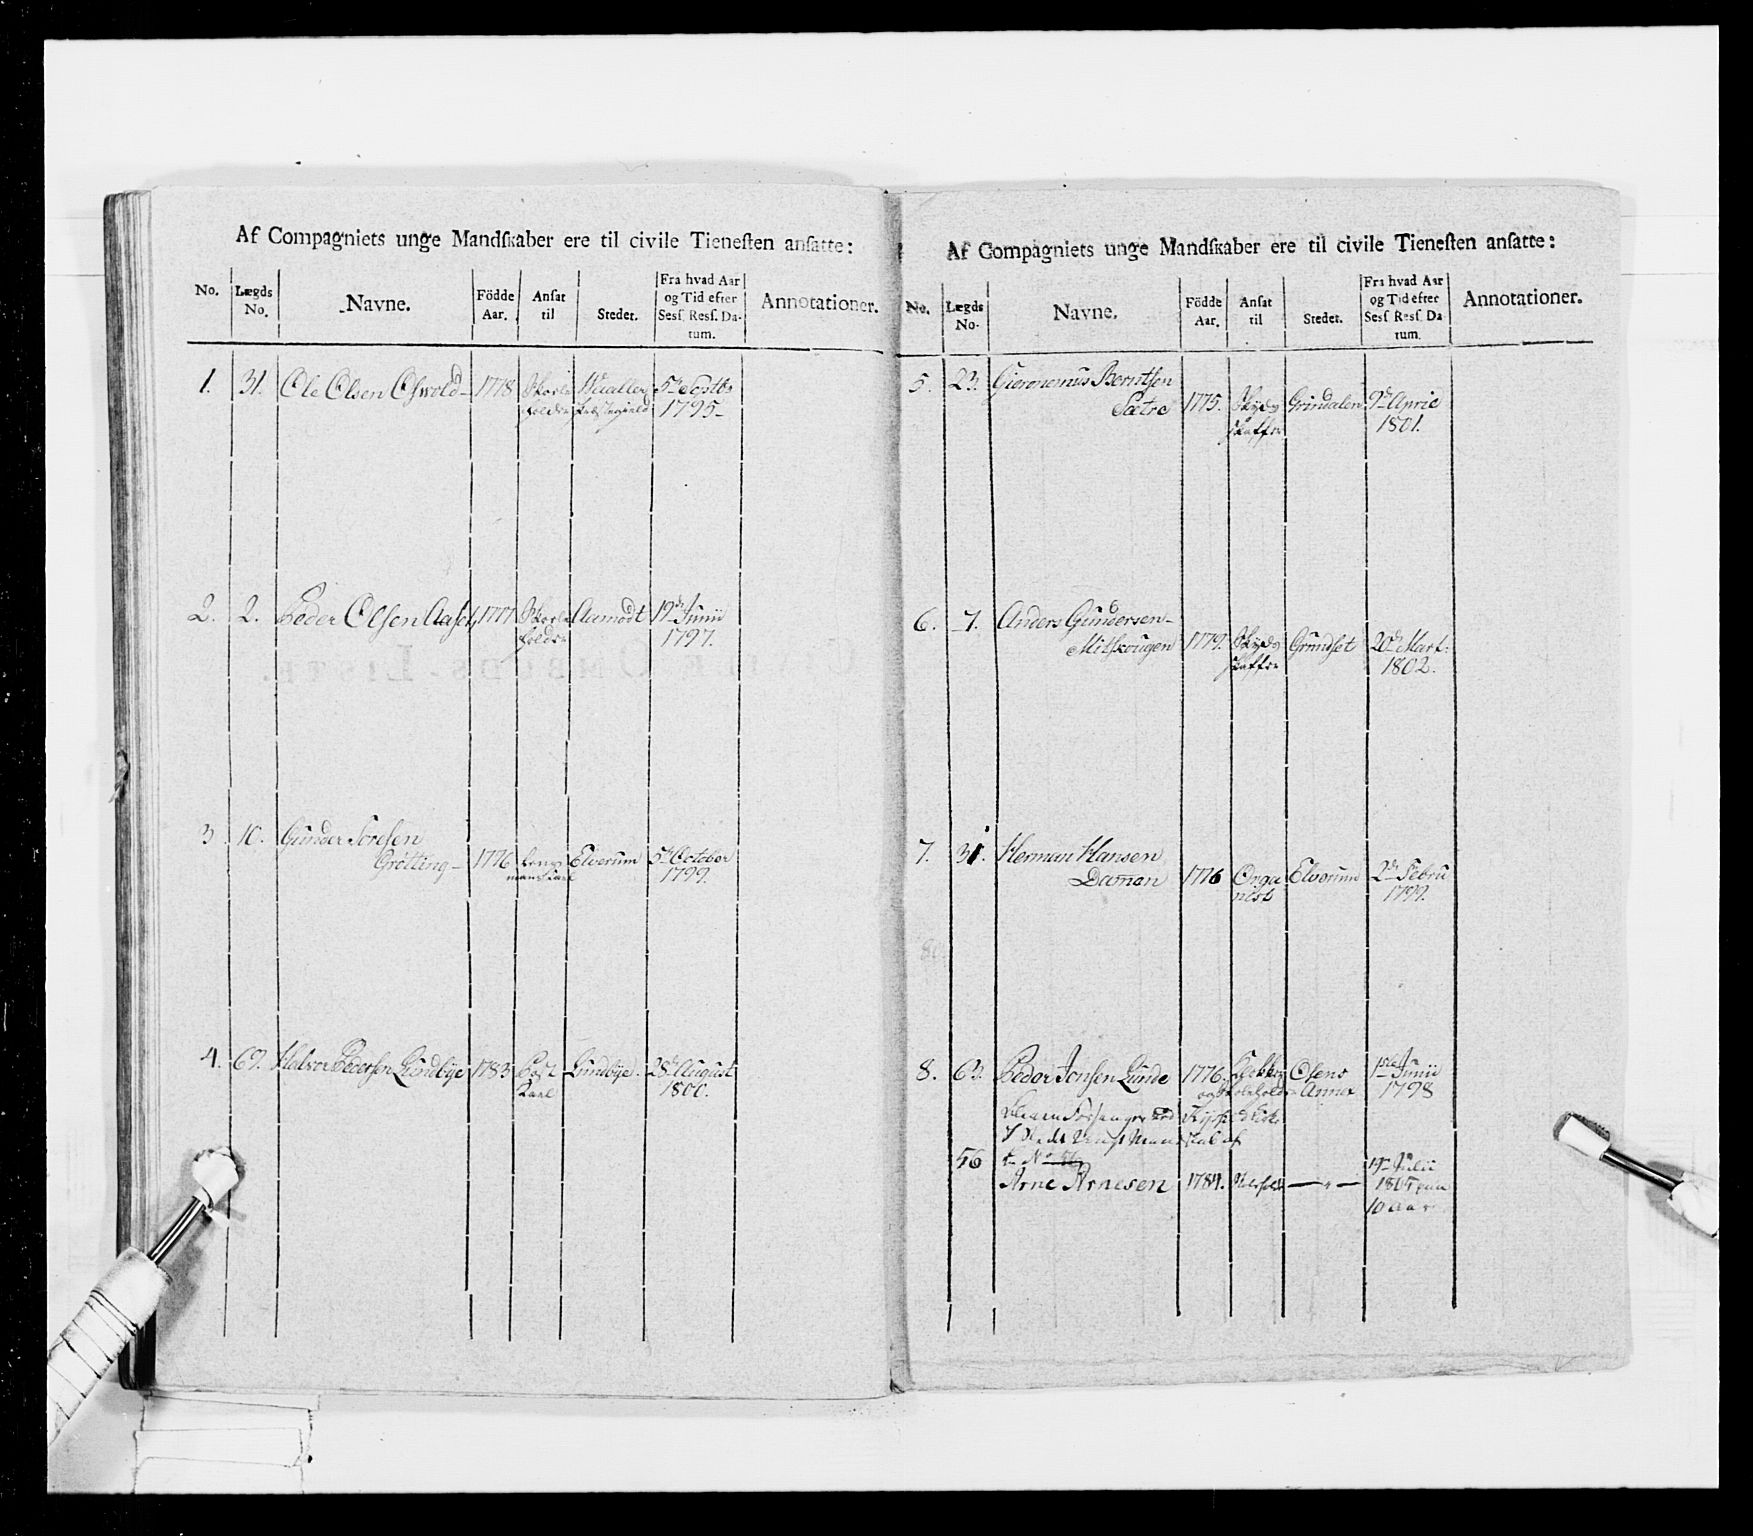 Af Compagniets unge Mandskaber ere til civile Tienesten ansatte:
No. Lægds No. Navne. Födde Aar. Ansat til Stedet. Fra hvad Aar og Tid efter Sess. Ress. Datum. Annotationer.
1. 31. Ole Olsen Oswold 1778 Skole Waaller 5te Septbr
holder Præstegield 1795
2. 2. Peder Olsen Aaset 1777 Skole Aamodt 19de Junii
holder 1797.
3 10. Gunder Toresen
Grötting 1776 Lens Elverum 5te October
mans Karl 1799.
4. 67. Halvor Pedersen Lundbye 1783 Post Lundbye. 28de August
Karl 1800.
Af Compagniets unge Mandskaber ere til civile Tienesten ansatte:
No. Lægds No. Navne. Födde Aar. Ansat til Stedet. Fra hvad Aar og Tid efter Sess. Ress. Datum. Annotationer.
5. 23. Gieronemus Berntsen
Sætre 1775. Skyds Grindalen 9de April
skaffer 1801.
6. 7. Anders Gundersen
Mitskougen 1779. Skyds Grundset 20de Mart:
skaffer 1802.
7. 31. Herman Hansen
Damen 1776 Orga Elverum 2de Febru
nist 1799.
8. 63. Peder Jonsen Lunde 1776. Osens 1ste Junii
og Skoleholder Annex 1798
56
Arne Arnesen 1784. Julii
10 Aar